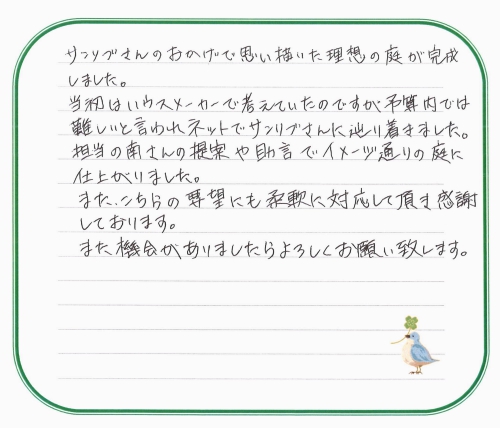 サンリブさんのおかげで思い描いた理想の庭が完成
しました。
当初はハウスメーカーで考えていたのですが予算内では
難しいと言われネットでサンリブさんに辿り着きました。
担当の南さんの提案や助言でイメージ通りの庭に
仕上がりました。
また、こちらの要望にも柔軟に対応して頂き感謝
しております。
また機会がありましたらよろしくお願い致します。